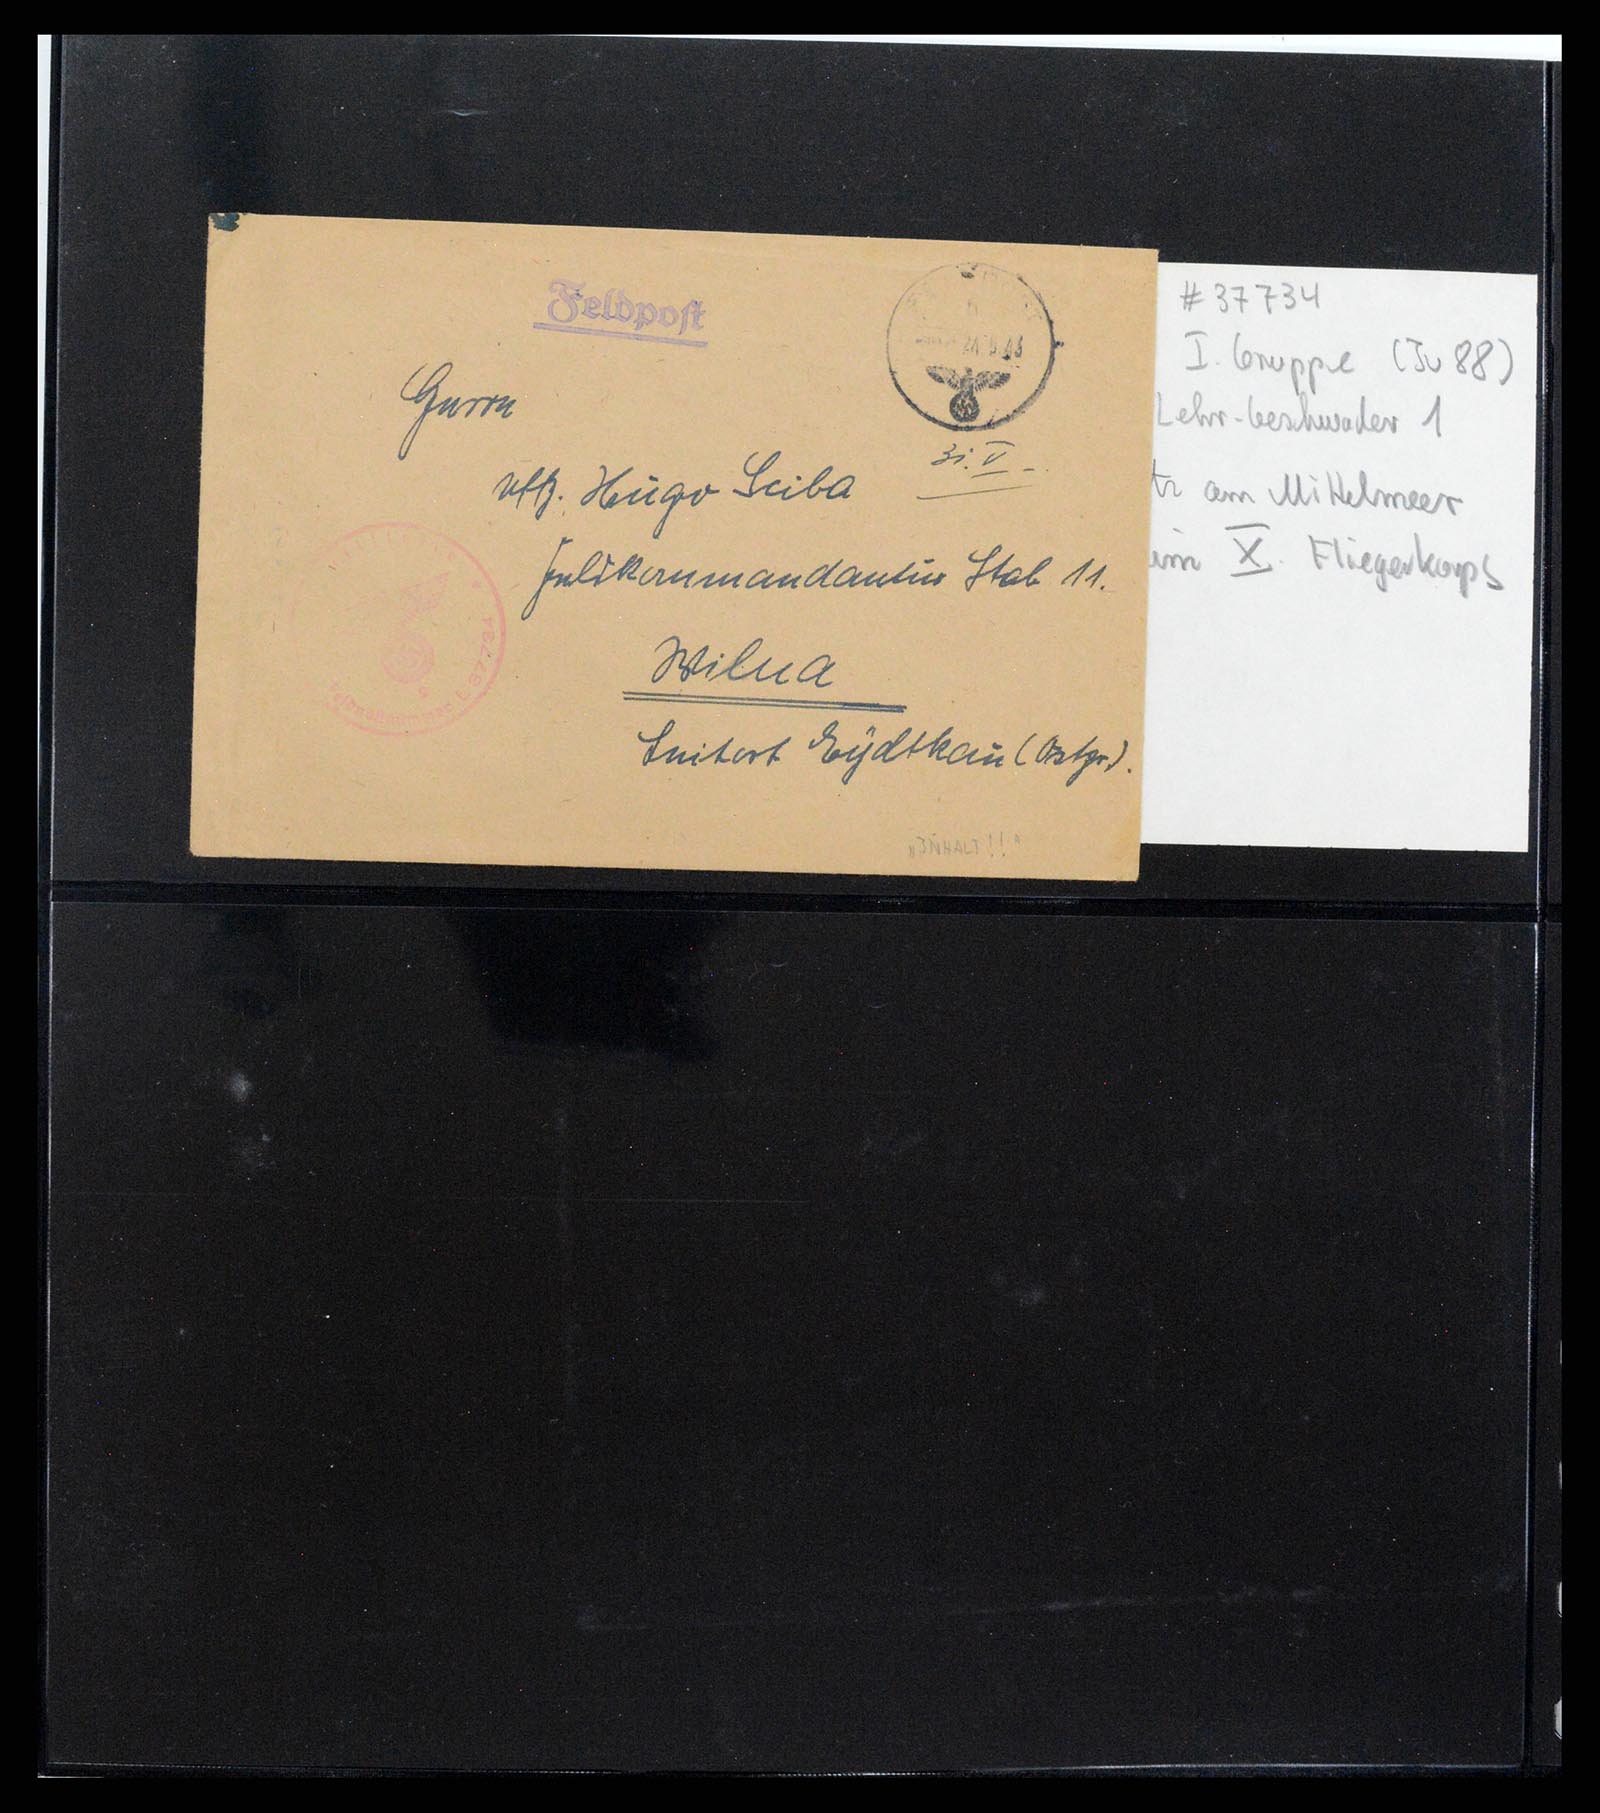 Feldpost
24.5.43
31.V.
Herrn
Uffz. Hugo Sciba
Feldkommandantur Stab 11.
Wilna
Leitort Eydtkau (Ostpr.).
Feldpostnummer L 37734
"INHALT!!"
# 37734
I. Gruppe (Ju 88)
Lehr-Geschwader 1
tz am Mittelmeer
eim X. Fliegerkorps